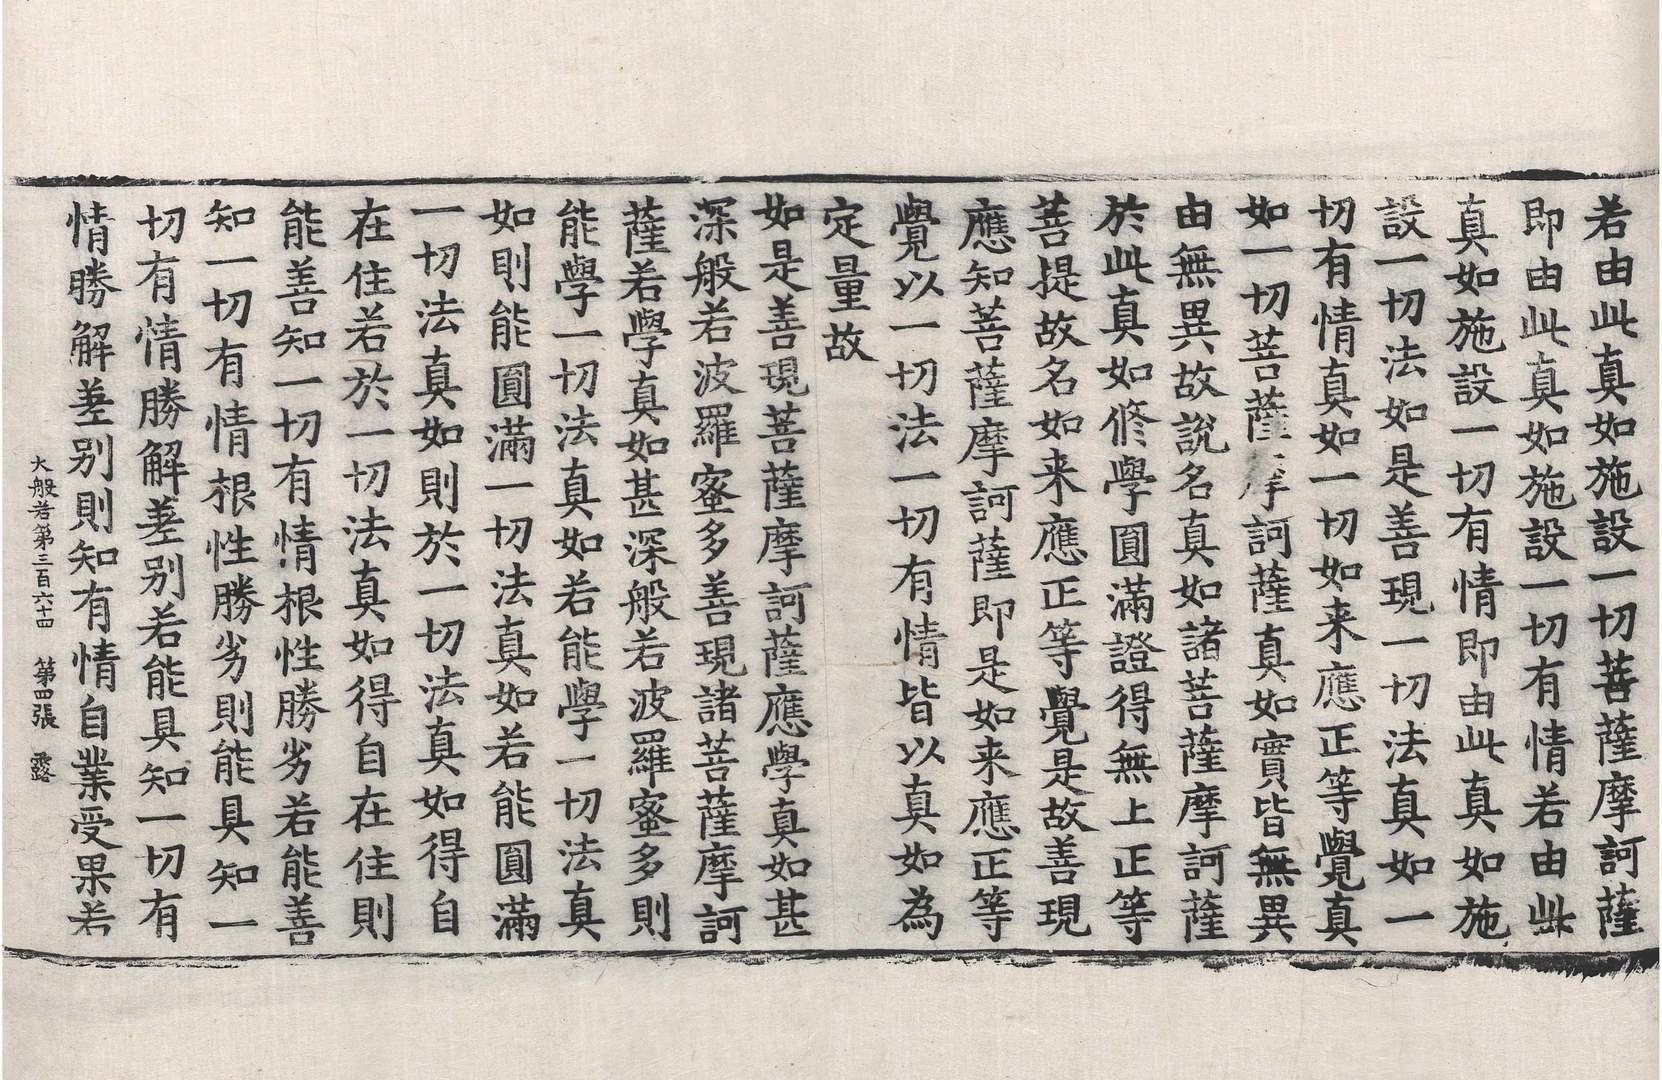 若由此真如施設一切菩薩摩訶薩
即由此真如施設一切有情若由此
真如施設一切有情即由此真如施
設一切法如是善現一切法真如一
切有情真如一切如来應正等覺真
如一切菩薩摩訶薩真如實皆無異
由無異故說名真如諸菩薩摩訶薩
於此真如修學圓滿證得無上正等
菩提故名如来應正等覺是故善現
應知菩薩摩訶薩即是如来應正等
覺以一切法一切有情皆以真如為
定量故
如是善現菩薩摩訶薩應學真如甚
深般若波羅蜜多善現諸菩薩摩訶
薩若學真如甚深般若波羅蜜多則
能學一切法真如若能學一切法真
如則能圓滿一切法真如若能圓滿
一切法真如則於一切法真如得自
在住若於一切法真如得自在住則
能善知一切有情根性勝劣若能善
知一切有情根性勝劣則能具知一
切有情勝解差别若能具知一切有
情勝解差别則知有情自業受果若
大般若第三百六十四 第四張 露